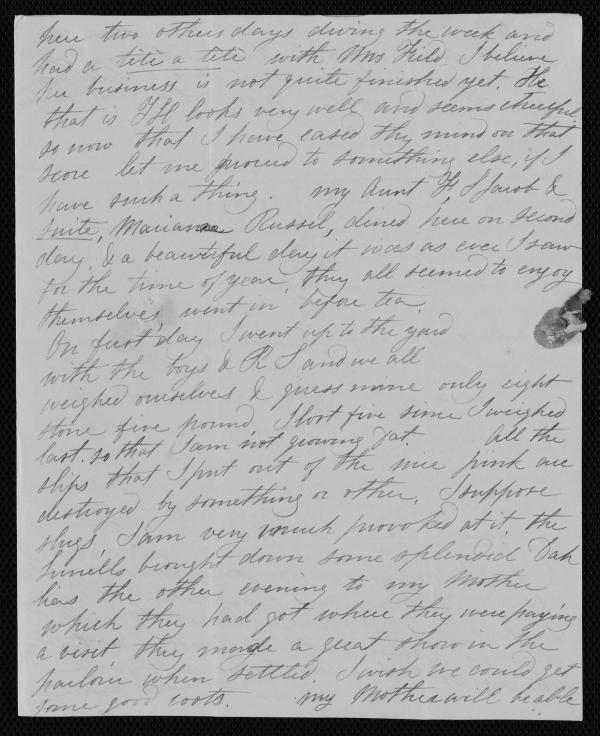 here two others days during the week and
had a tête a tête with Mrs Field, I believe
her business is not quite finished yet. He
that is TH looks very well and seems cheerful,
so now that I have eased thy mind on that
score let me proceed to something else, if I
have such a thing. my Aunt F, S Jacob &
suite, Marianne Russel, dined here on second
day, & a beautiful day it was as ever I saw
for the time of year, they all seemed to enjoy
themselves, went in before tea.
On first day I went up to the yard
with the boys & R S and we all
weighed ourselves & guess mine only eight
stone five pound, I lost five since I weighed
last. so that I am not growing fat. All the
slips that I put out of the nice pink are
destroyed by something or other, I suppose
slugs, I am very much provoked at it. the
brought down some splendid Dah
lias the other evening to my Mother
which they had got where they were paying
a visit, they made a great show in the
parlour when settled. I wish we could get
some good roots. my Mother will be able